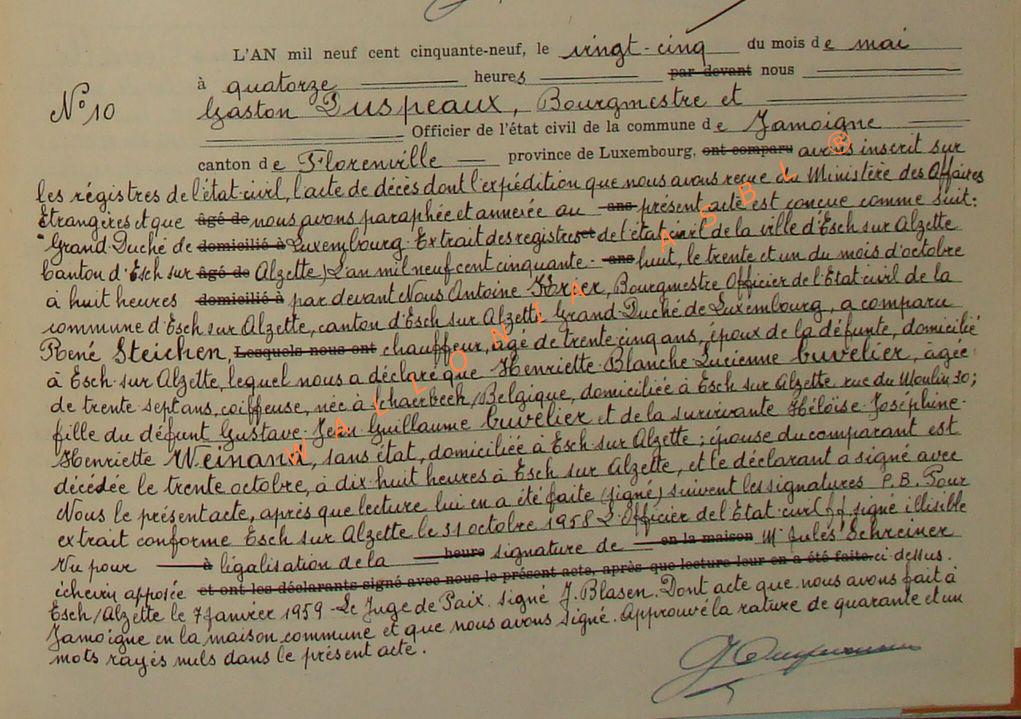 L'AN mil neuf cent cinquante-neuf, le vingt-cinq du mois de mai
à quatorze heures par devant nous
N° 10
Gaston Duspeaux, Bourgmestre et
Officier de l'état civil de la commune de Jamoigne
canton de Florenville province de Luxembourg, ont comparu avons inscrit sur
les régistres de l'état-civil, l'acte de décès dont l'expédition que nous avons reçue du Ministère des Affaires
Etrangères et que âgé de nous avons paraphée et annexée au ans présent acte est conçue comme suit:
"Grand-Duché de domicilié à Luxembourg. Extrait des registres et de l'état civil de la ville d'Esch sur Alzette
(Canton d'Esch sur âgé de Alzette) L'an mil neuf cent cinquante- ans huit, le trente et un du mois d'octobre
à huit heures domicilié à par devant Nous Antoine Krier, Bourgmestre Officier de l'Etat-civil de la
commune d'Esch sur Alzette, canton d'Esch sur Alzette Grand-Duché de Luxembourg, a comparu
René Steichen, Lesquels nous ont chauffeur, âgé de trente cinq ans, époux de la défunte, domicilié
à Esch-sur Alzette, lequel nous a déclaré que Henriette-Blanche Lucienne Cuvelier, âgée
de trente sept ans, coiffeuse, née à Schaerbeek/Belgique, domiciliée à Esch sur Alzette rue du Moulin 30;
fille du défunt Gustave-Jean-Guillaume Cuvelier et de la survivante Héloïse-Joséphine-
Henriette Weinand, sans état, domiciliée à Esch sur Alzette; épouse du comparant est
décédée le trente octobre, à dix-huit heures à Esch sur Alzette, et le déclarant a signé avec
Nous le présent acte, après que lecture lui en a été faite (signé) suivent les signatures P.B. Pour
extrait conforme Esch sur Alzette le 31 octobre 1958 L'officier de l'Etat-civil (ff. signé illisible
Vu pour à légalisation de la heure signature de en la maison Mr Jules Schreiner
échevin apposée et ont les déclarants signé avec nous le présent acte, après que lecture leur en a été faite. ci-dessus.
Esch/Alzette le 7 Janvier 1959 - Le Juge de Paix. signé J. Blasen. Dont acte que nous avons fait à
Jamoigne en la maison commune et que nous avons signé. Approuvé la rature de quarante et un
mots rayés nuls dans le présent acte.
WALLONIA ASBL ®